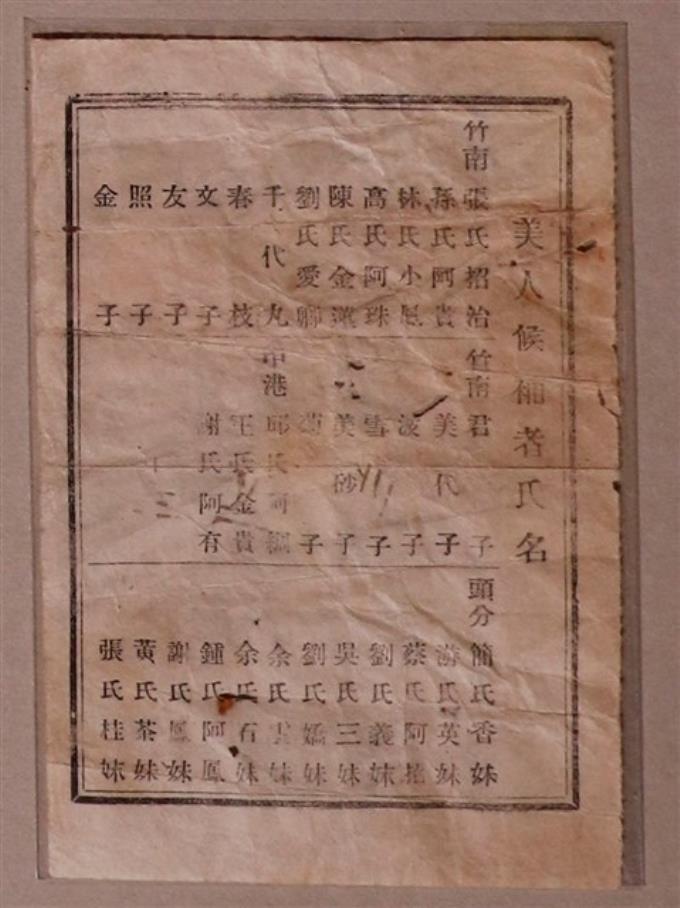 美人候補者氏名
竹南 張氏招治
孫氏阿貴
林氏小
高氏阿珠
陳氏金蓮
劉氏愛卿
千代丸
春枝
文子
友子
照子
金子
竹南 君子
美代子
波子
雪子
美砂子
菊子
中港 邱氏阿
王氏金貴
謝氏阿有
頭分 簡氏香妹
游氏英妹
蔡氏阿招
劉氏義妹
吳氏三妹
劉氏嬌妹
余氏雲妹
余氏石妹
鍾氏阿鳳
謝氏鳳妹
黃氏茶妹
張氏桂妹